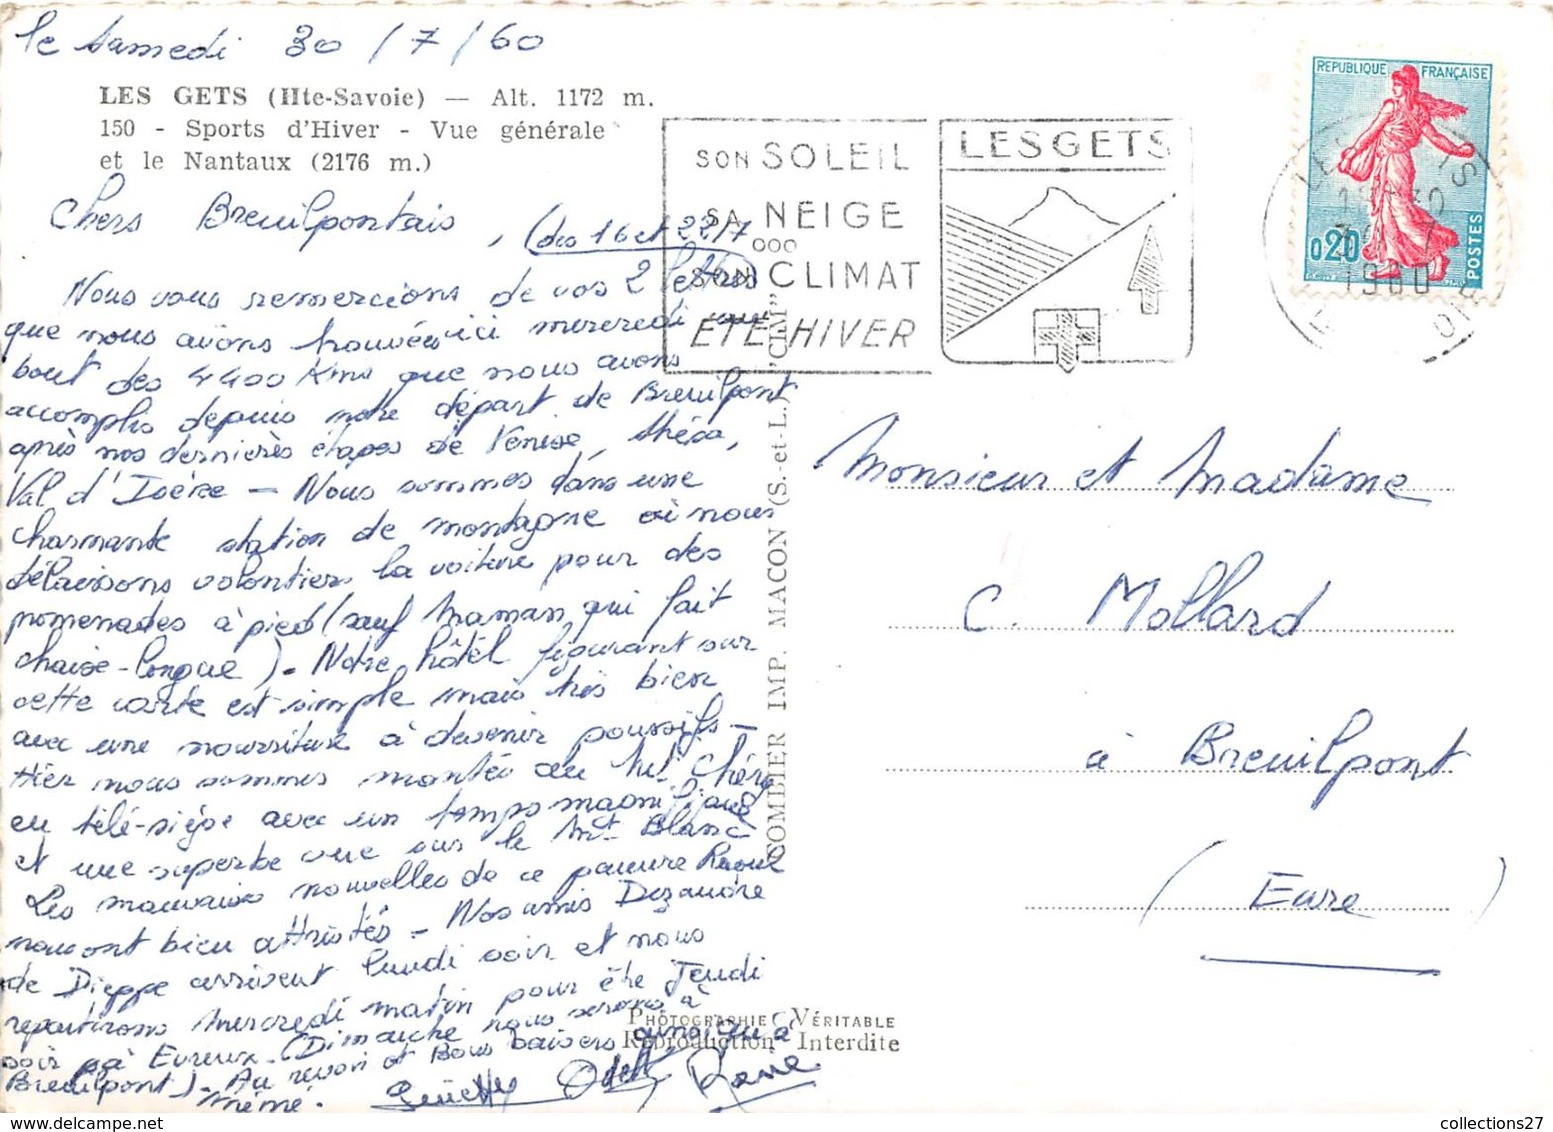 le samedi 30/7/60
LES GETS (Hte-Savoie) — Alt. 1172 m.
150 - Sports d'Hiver - Vue générale
et le Nantaux (2176 m.)
Chers Breuilpontais, (des 16 et 22/7
Nous vous remercions de vos 2 lettres
que nous avons trouvées ici mercredi au
bout des 4400 Kms que nous avons
accomplis depuis notre départ de Breuilpont
après nos dernières étapes de Venise,
Val d'Isère - Nous sommes dans une
charmante station de montagne où nous
délaissons volontiers la voiture pour des
promenades à pied (sauf Maman qui fait
chaise-longue) - Notre hôtel figurant sur
cette carte est simple mais très bien
avec une nourriture à devenir poussifs -
Hier nous sommes montés au Mt Chéry
en télé-siège avec un temps magnifique
et une superbe vue sur le Mt Blanc
Les mauvaises nouvelles de ce pauvre Raoul
nous ont bien attristés - Nos amis Dezandre
de Dieppe arrivent lundi soir et nous
repartirons Mercredi matin pour être Jeudi
soir à Evreux - (Dimanche nous serons à
Breuilpont) - Au revoir et Bons baisers ainsi qu'à
mémé. Odette
SON SOLEIL
SA NEIGE
ooo
SON CLIMAT
ÉTÉ-HIVER
LES GETS
REPUBLIQUE FRANÇAISE
0,20
POSTES
LES GETS
1960
COMBIER IMP. MACON (S.-et-L.) "CIM"
Monsieur et Madame
C. Mollard
à Breuilpont
(Eure)
PHOTOGRAPHIE VÉRITABLE
Reproduction Interdite
collections27